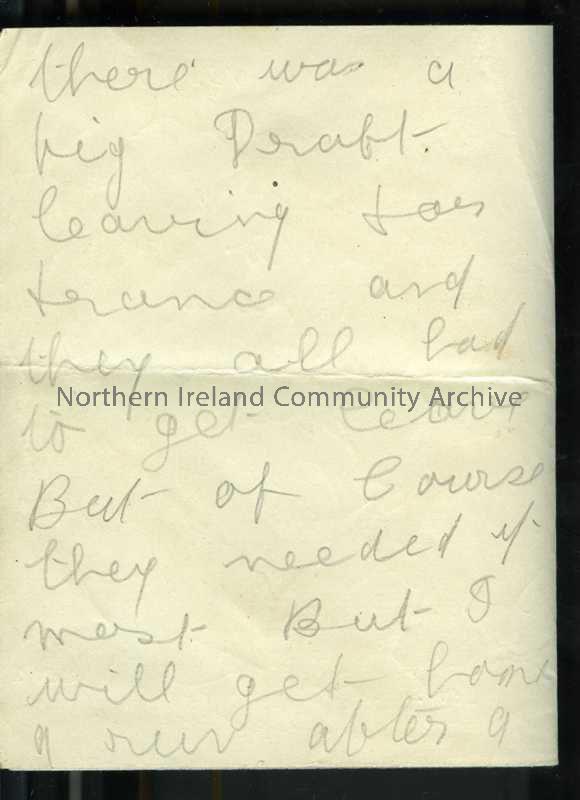 there was a
big Draft
leaving for
france and
they all had
to get leave
Northern Ireland Community Archive
But of Course
they needed it
most But I
will get home
a run after a